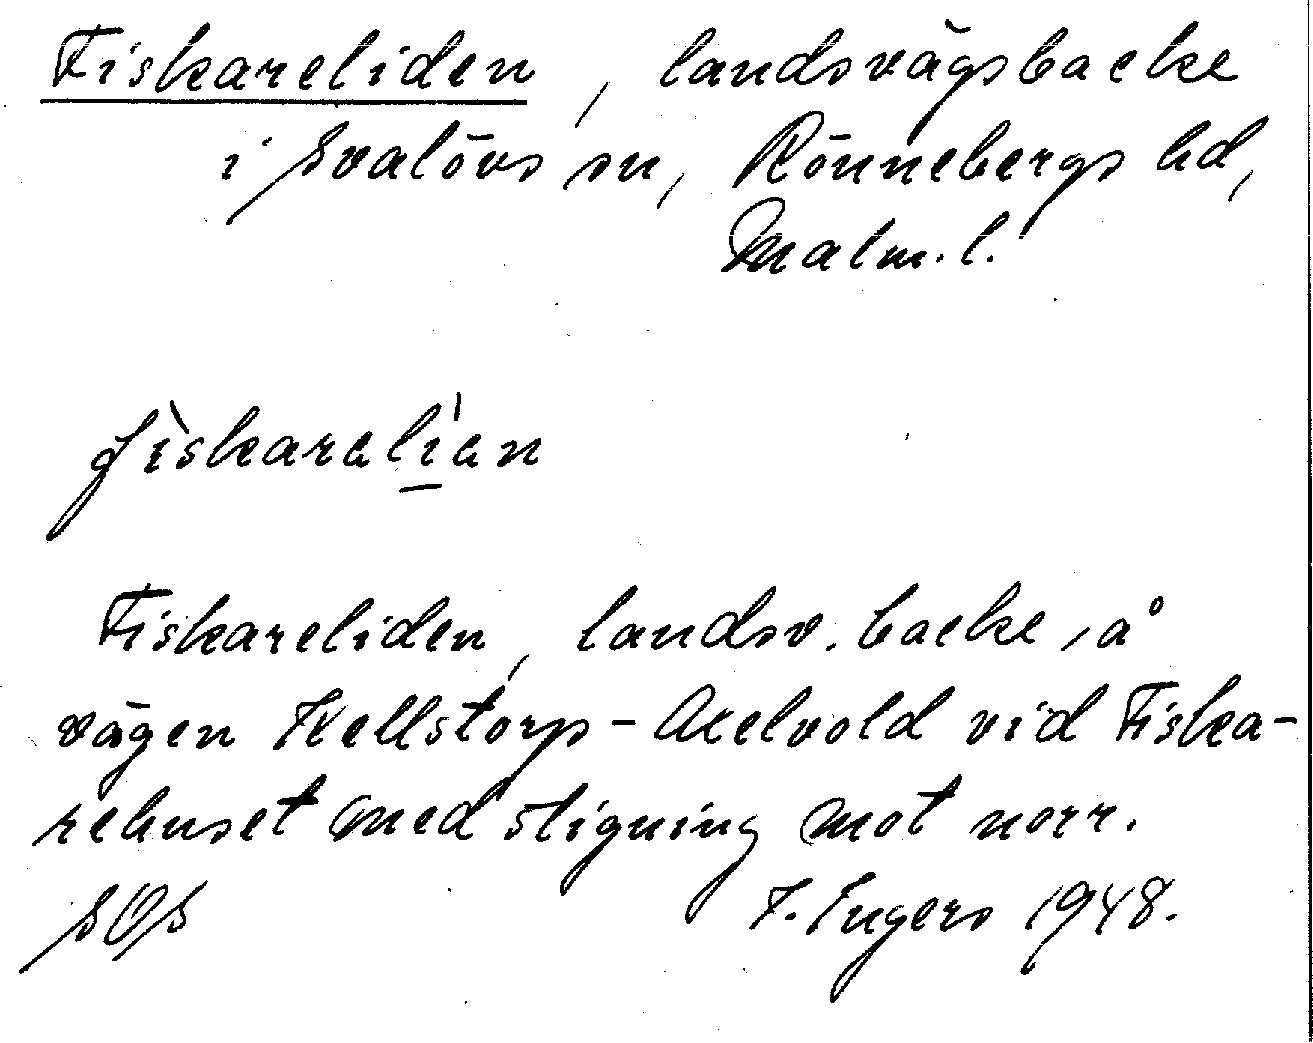 Fiskareliden, landsvägsbacke
i Svalövs sn, Rönnebergs hd,
Malm.l.
fìskaralían
Fiskareliden, landsv.backe, å
vägen Kellstorp-Axelvold vid Fiska-
rehuset med stigning mot norr.
SOS F. Ingers 1948.